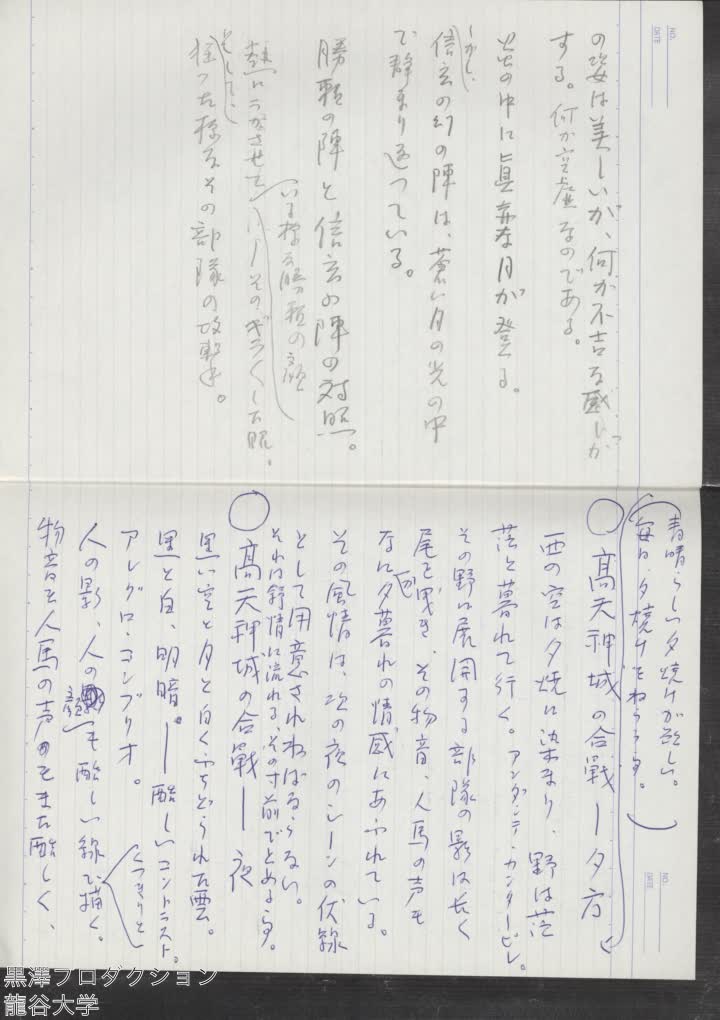 NO.
DATE
の姿は美しいが、何か不吉な感じが
する。何か空虚なのである。
と、その中に真赤な月が登る。
しかし、
信玄の幻の陣は、蒼い月の光の中
で静まり返っている。
勝頼の陣と信玄の陣の対照。
いる様な勝頼の顔
熱にうかされて
そのギラギラした眼。
そして、
狂った様なその部隊の攻撃。
NO.
DATE
素晴らしい夕焼けが欲しい。
毎日、夕焼けをねらうます。
◯ 高天神城の合戦ー夕方
西の空は夕焼に染まり、野は茫
茫と暮れて行く。アンダンテ・カンタービレ。
その野に展開する部隊の影は長く
尾を曳き、その物音、人馬の声も
なにか夕暮れの情感にあふれている。
その風情は、次の夜のシーンの伏線
として用意されねばならない。
それは抒情に流れる、その寸前でとめるます。
◯ 高天神城の合戦ー夜
黒い空と月と白くふちどられた雲。
黒と白、明暗。ー酷しいコントラスト。
アレグロ・コンブリオ。
くっきりと
人の影、人の顔も酷しい線で描く。
物音も人馬の声もまた酷しく、
黒澤プロダクション
龍谷大学